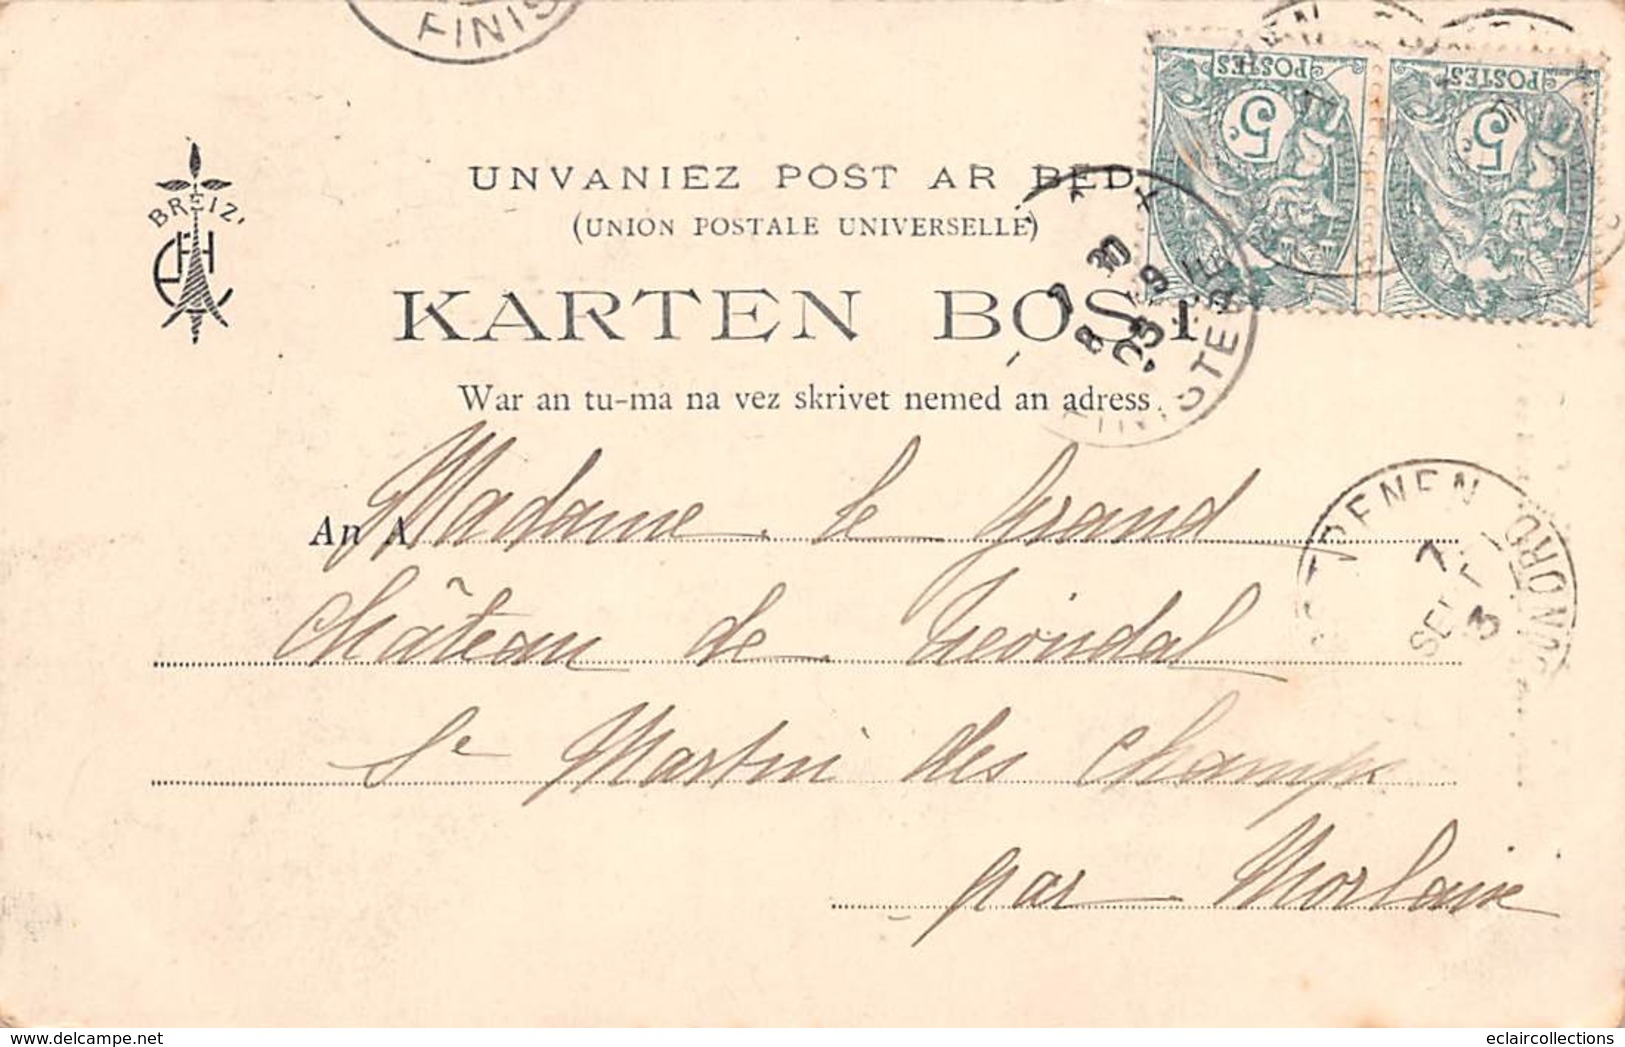 FINIS
POSTES POSTES
5c 5c
BREIZ
UNVANIEZ POST AR BED
(UNION POSTALE UNIVERSELLE)
KARTEN BOST
War an tu-ma na vez skrivet nemed an adress.
7 30
8 9
03
An A Madame le Grand
château de
St Martin des Champs
par Morlaix
7
SEPT
3
DU-NORD
delcampe.net
eclaircollections